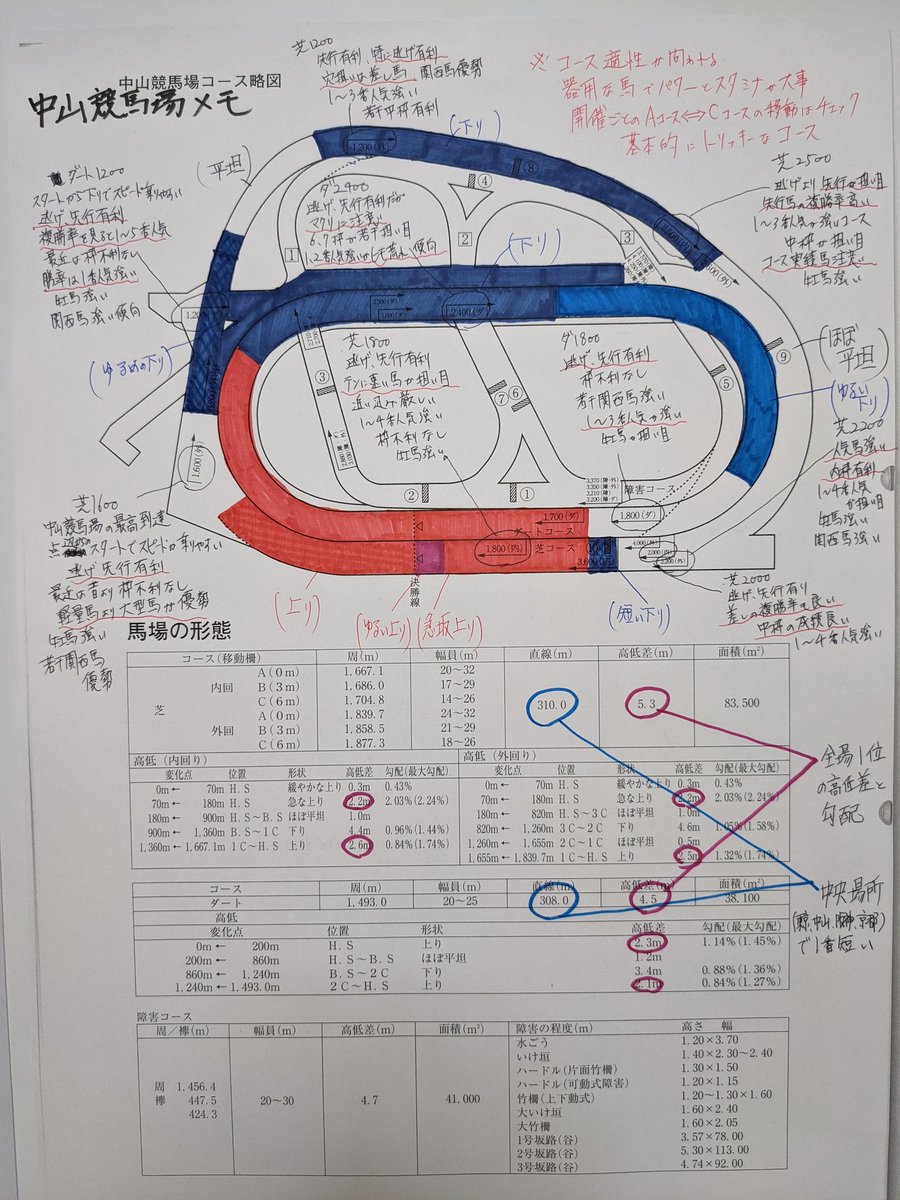 中山競馬場コース略図
中山競馬場メモ
芝1200
先行有利、特に逃げ有利
穴狙いは差し馬、関西馬優勢
1〜3番人気強い
若干中枠有利
※コース適性が問われる
器用な馬でパワーとスタミナが大事
開催ごとのAコース⇔Cコースの移動はチェック
基本的にトリッキーなコース
ダート1200
スタートから下りでスピード乗りやすい
逃げ、先行有利
複勝率を見ると1〜5番人気
最近は枠不利なし
勝率は1番人気強い
牡馬強い
関西馬強い傾向
(平坦)
(下り)
ダ2400
逃げ、先行有利だが
マクリに注意
6,7枠が若干狙い目
芝2500
逃げより先行が狙い目
先行馬の複勝率高い
1〜3番人気が強いコース
中枠が狙い目
コース実績馬注意
牡馬強い
(下り)
(ゆるめの下り)
芝1800
逃げ、先行有利
テンに速い馬が狙い目
追い込み厳しい
1〜4番人気強い
枠不利なし
牡馬強い
ダ1800
逃げ、先行有利
枠不利なし
若干関西馬強い
1〜3番人気強い
牡馬が狙い目
(ほぼ平坦)
(ゆるい下り)
芝2200
人気馬強い
内枠有利
1〜4番人気
が狙い目
牡馬強い
関西馬強い
芝1600
中山競馬場の最高到達
スタートでスピードが乗りやすい
逃げ、先行有利
最近は昔より枠不利なし
軽量馬より大型馬が優勢
牡馬強い
若干関西馬
優勢
芝2000
逃げ、先行有利
差しの複勝率も良い
中枠の成績良い
1〜4番人気強い
1,200(外)
1,600(外)
2,500(ダ)
1,000(ダ)
2,400(ダ)
障害コース
3,370(障・外)
3,350(障・外)
3,210(障・外)
3,200(障・外)
1,800(ダ)
1,700(ダ)
ダートコース
1,800(内)
芝コース
4,000(外)
2,000(内)
2,200(外)
3,600(内)
決勝線
(上り)
(ゆるい上り)
(急坂上り)
(短い下り)
馬場の形態
コース(移動柵) 周(m) 幅員(m) 直線(m) 高低差(m) 面積(m²)
芝 内回 A(0m) 1,667.1 20〜32 310.0 5.3 83,500
B(3m) 1,686.0 17〜29
C(6m) 1,704.8 14〜26
外回 A(0m) 1,839.7 24〜32
B(3m) 1,858.5 21〜29
C(6m) 1,877.3 18〜26
高低(内回り)
変化点 位置 形状 高低差 勾配(最大勾配)
0m← 70m H.S 緩やかな上り 0.3m 0.43%
70m← 180m H.S 急な上り 2.2m 2.03%(2.24%)
180m← 900m H.S〜B.S ほぼ平坦 1.0m
900m← 1,360m B.S〜1C 下り 4.4m 0.96%(1.44%)
1,360m←1,667.1m 1C〜H.S 上り 2.6m 0.84%(1.74%)
高低(外回り)
変化点 位置 形状 高低差 勾配(最大勾配)
0m← 70m H.S 緩やかな上り 0.3m 0.43%
70m← 180m H.S 急な上り 2.2m 2.03%(2.24%)
180m← 820m H.S〜3C ほぼ平坦 1.0m
820m← 1,260m 3C〜2C 下り 4.6m 1.05%(1.58%)
1,260m← 1,655m 2C〜1C ほぼ平坦 0.5m
1,655m←1,839.7m 1C〜H.S 上り 2.5m 1.32%(1.74%)
全場1位
の高低差と
勾配
コース 周(m) 幅員(m) 直線(m) 高低差(m) 面積(m²)
ダート 1,493.0 20〜25 308.0 4.5 38,100
高低
変化点 位置 形状 高低差 勾配(最大勾配)
0m← 200m H.S 上り 2.3m 1.14%(1.45%)
200m← 860m H.S〜B.S ほぼ平坦 1.2m
860m← 1,240m B.S〜2C 下り 3.4m 0.88%(1.36%)
1,240m←1,493.0m 2C〜H.S 上り 2.1m 0.84%(1.27%)
中央場所
(東京、中山、阪神、京都)
で1番短い
障害コース
周/襷(m) 幅員(m) 高低差(m) 面積(m²) 障害の程度(m) 高さ 幅
周 1,456.4 20〜30 4.7 41,000
襷 447.5
424.3
水ごう 1.20×3.70
いけ垣 1.40×2.30〜2.40
ハードル(片面竹柵) 1.30×1.50
ハードル(可動式障害) 1.20×1.15
竹柵(上下動式) 1.20〜1.30×1.60
大いけ垣 1.60×2.40
大竹柵 1.60×2.05
1号坂路(谷) 3.57×78.00
2号坂路(谷) 5.30×113.00
3号坂路(谷) 4.74×92.00